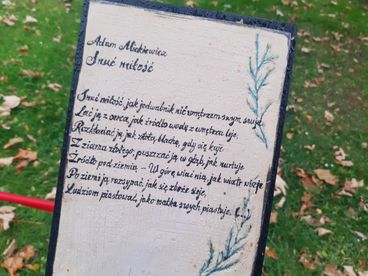 Adam Mickiewicz
Snuć miłość
Snuć miłość, jak jedwabnik nić wnętrzem swym snuje,
Lać ją z serca, jak źródło wodę z wnętrza leje,
Rozkładać ją jak złotą blachę, gdy się kuje
Z ziarna złotego, puszczać ją w głąb, jak nurtuje
Źródło pod ziemią. – W górę wiać nią, jak wiatr wieje,
Po ziemi ją rozsypać, jak się zboże sieje,
Ludziom piastować, jako matka swych piastuje. (...)